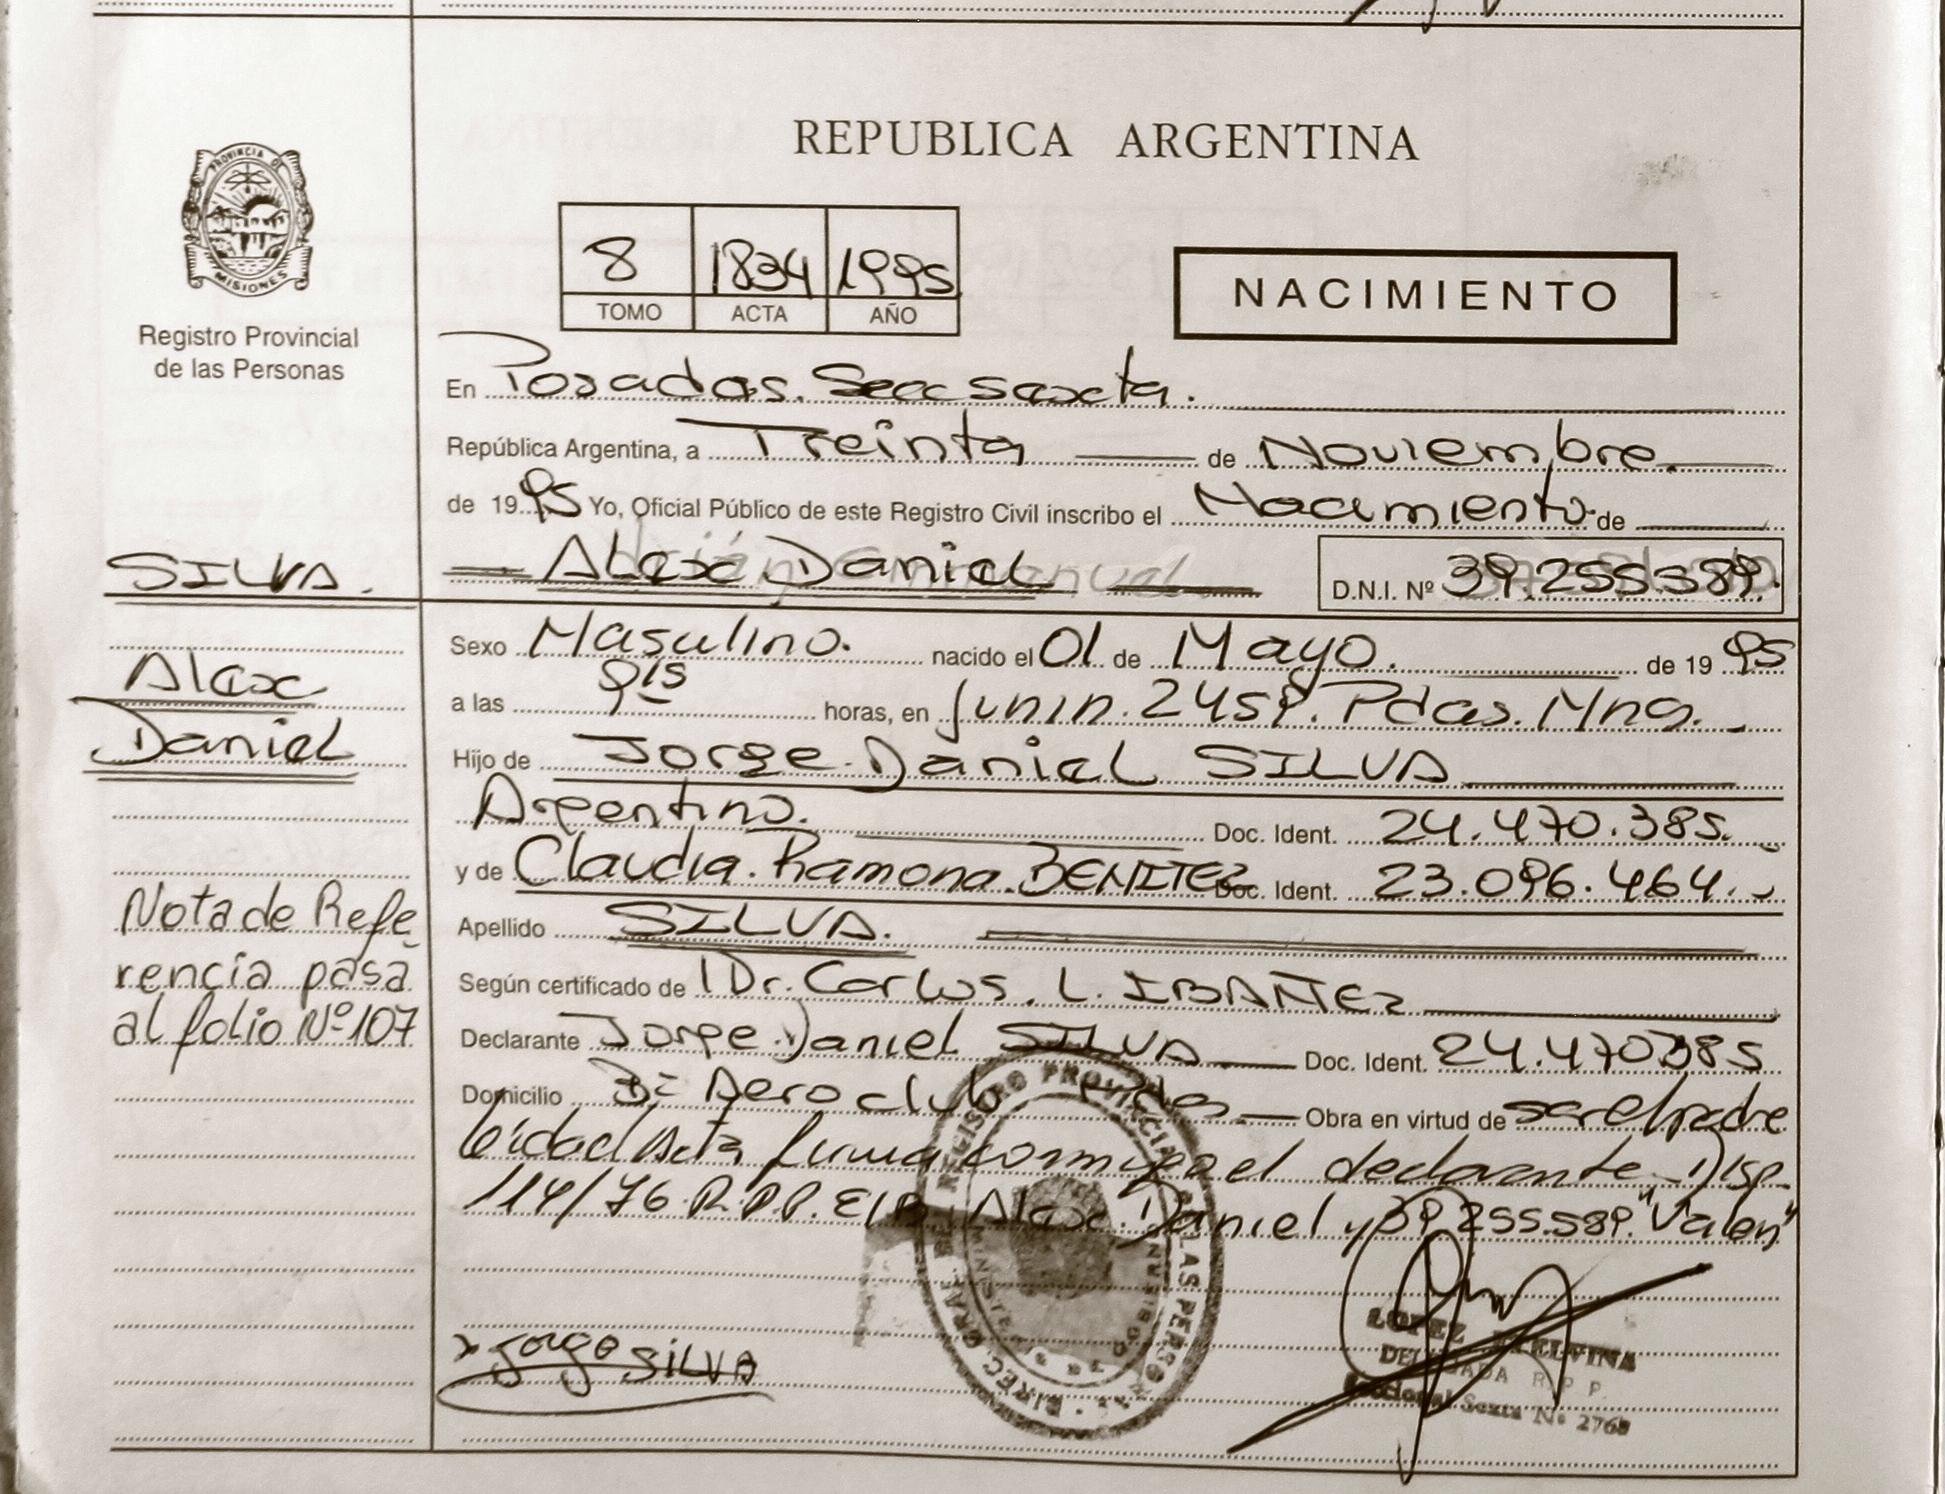 REPUBLICA ARGENTINA
PROVINCIA DE
MISIONES
Registro Provincial
de las Personas
8 1834 1995
TOMO ACTA AÑO
NACIMIENTO
En Posadas. Secc sexta.
República Argentina, a Treinta de Noviembre.
de 1995 Yo, Oficial Público de este Registro Civil inscribo el Nacimiento de
SILVA. Alex Daniel D.N.I. Nº 39.255.589.
Alex
Daniel
Sexo Masculino. nacido el 01 de Mayo. de 1995
a las 9 15 horas, en Junin. 2459. Pdas. Mnes.
Hijo de Jorge Daniel SILVA
Argentino. Doc. Ident. 24.470.385.
y de Claudia. Ramona. BENITEZ Doc. Ident. 23.096.464.
Nota de Refe
rencia pasa
al folio Nº 107
Apellido SILVA.
Según certificado de Dr. Carlos. L. IBAÑEZ
Declarante Jorge Daniel SILVA Doc. Ident. 24.470385
Domicilio Bº Aeroclub Pdas Obra en virtud de ser el padre
leida el Acta firma conmigo el declarante Disp.
114/76 R.P.P. E/R Alex. Daniel y 39.255.589. "Valen"
Jorge SILVA
REGISTRO PROVINCIAL DE LAS PERSONAS
LOPEZ ETELVINA
DELEGADA R. P. P.
Seccional Sexta Nº 2768